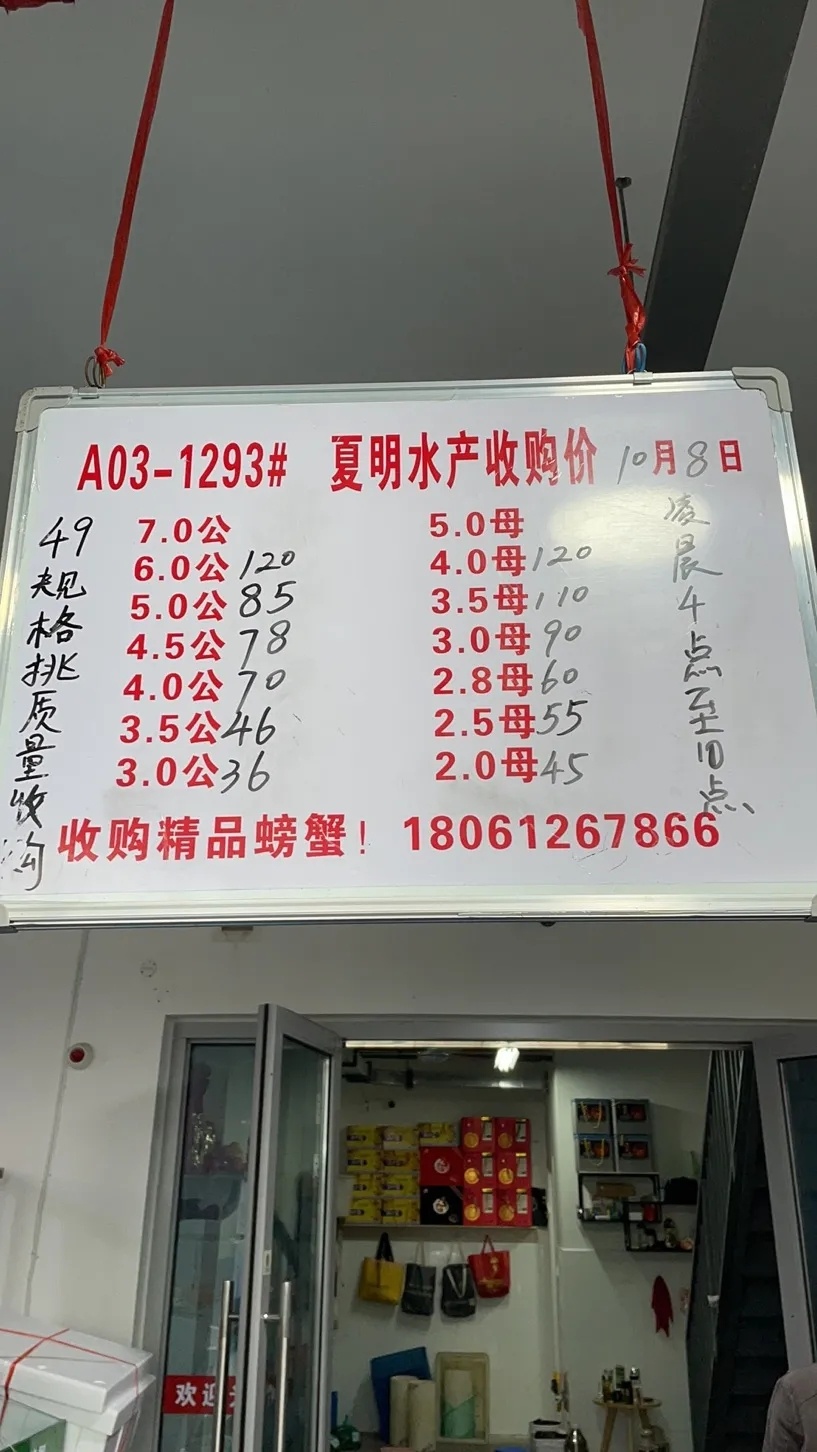 A03-1293# 夏明水产收购价 10月8日
7.0公
6.0公 120
5.0公 85
4.5公 78
4.0公 70
3.5公 46
3.0公 36
5.0母
4.0母 120
3.5母 110
3.0母 90
2.8母 60
2.5母 55
2.0母 45
49规格挑质量收购
凌晨4点至10点
收购精品螃蟹! 18061267866
欢迎